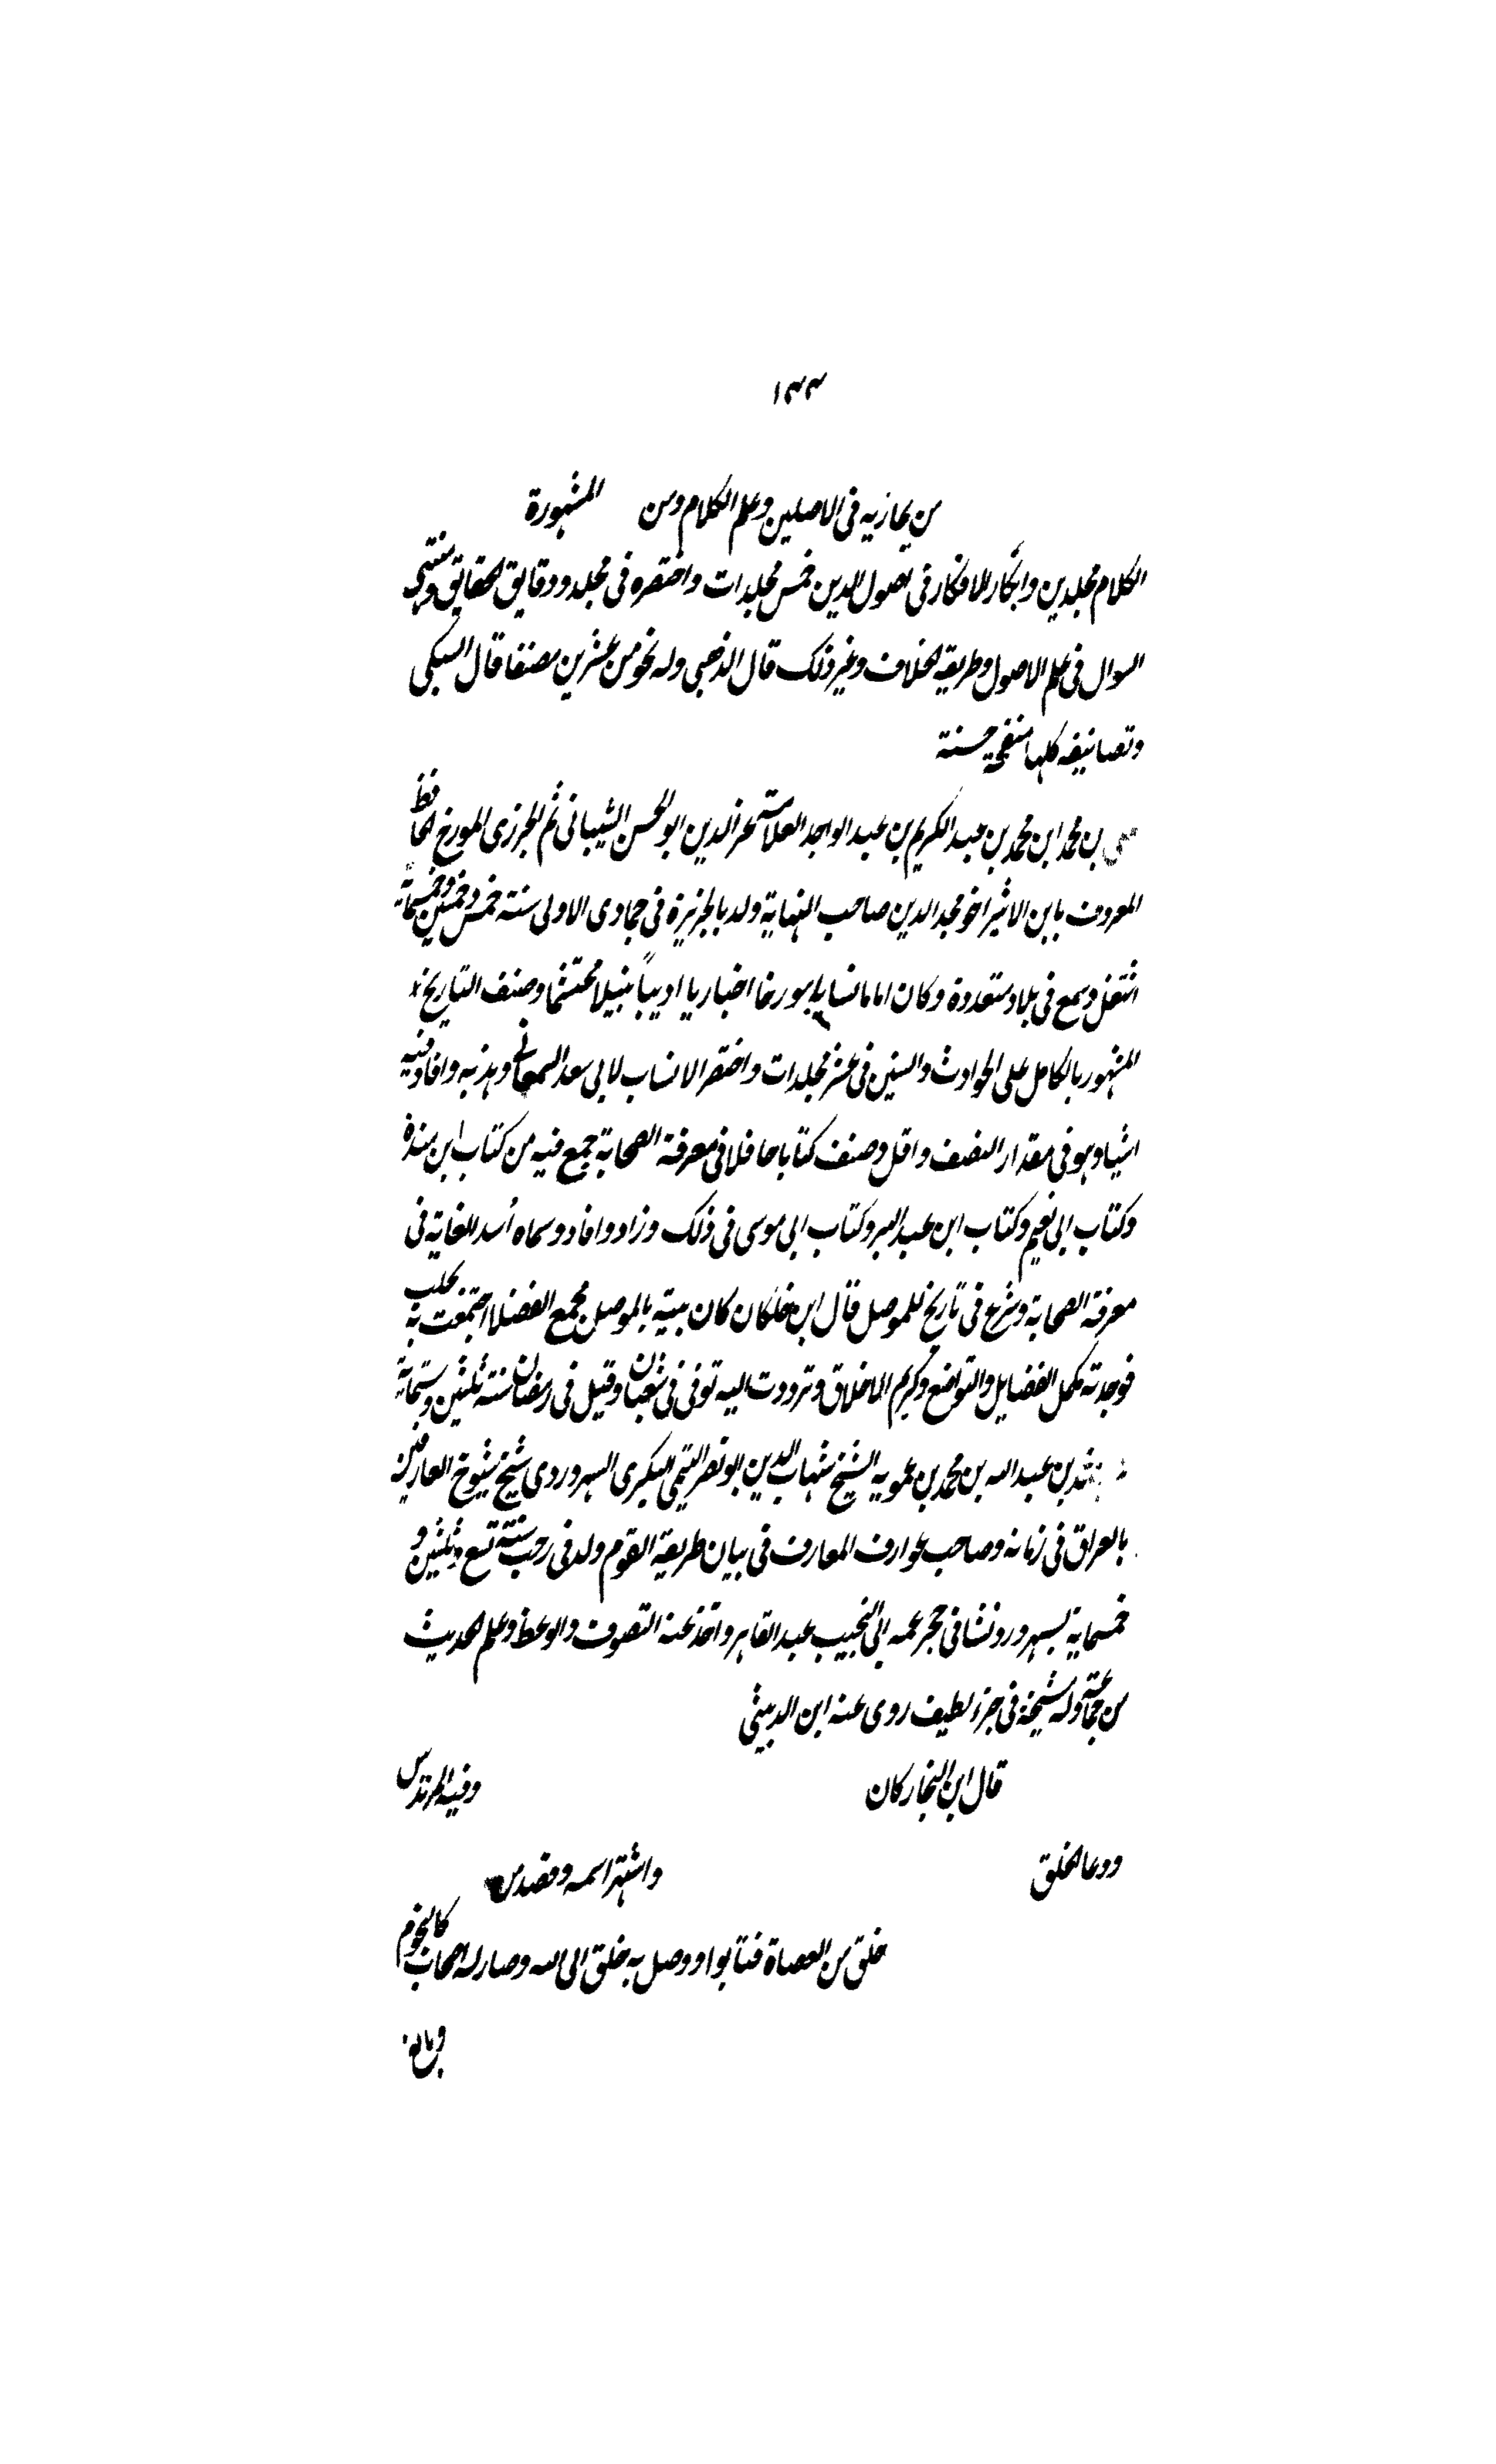 ١٣٣
من يحازيه فى الاصلين وعلم الكلام ومن المشهورة
الكلام مجلدين وابكار الافكار فى اصول الدين خمس مجلدات واختصره فى مجلد ودقايق الحقايق ومنتهى
السوال فى علم الاصول وطريقة الخلاف وغير ذلك قال الذهبى وله نحو من عشرين مصنفا قال السبكى
وتصانيفه كلها منقحة حسنة
على بن محمد ابن محمد بن عبد الكريم بن عبد الواحد العلامة عز الدين ابو الحسن الشيبانى ثم الجزرى المورخ الحافظ
المعروف بابن الاثير اخو مجد الدين صاحب النهاية ولد بالجزيرة فى جمادى الاولى سنة خمس وخمسين وخمسماية
اشتغل وسمع فى بلاد متعددة وكان اماما نسابا مورخا اخباريا اديباً نبيلا محتشما وصنف التاريخ
المشهور بالكامل على الحوادث والسنين فى عشر مجلدات واختصر الانساب لابى سعد السمعانى وهذبه وافاد فيه
اشياء وهو فى مقدار النصف واقل وصنف كتابا حافلا فى معرفة الصحابة جمع فيه من كتاب ابن مندة
وكتاب ابى نعيم وكتاب ابن عبد البر وكتاب ابى موسى فى ذلك وزاد وافاد وسماه اُسد الغابة فى
معرفة الصحابة وشرع فى تاريخ للموصل قال ابن خلكان كان بيته بالموصل مجمع الفضلا اجتمعت به بحلب
فوجدته مكمل الفضايل والتواضع وكريم الاخلاق وترددت اليه توفى فى شعبان وقيل فى رمضان سنة ثلثين وستماية
بن عبد الله بن محمد بن عمويه الشيخ شهاب الدين ابو نصر التيمى البكرى السهروردى شيخ شيوخ العارفين
بالعراق فى زمانه وصاحب عوارف المعارف فى بيان طريقة القوم ولد فى رجب سنة تسع وثلثين و
خمسماية بسهرورد ونشا فى حجر عمه ابى النجيب عبد القاهر واخذ عنه التصوف والوعظ وعلم الحديث
من جماعة وله مشيخة فى جزء لطيف روى عنه ابن الدبيثى
قال ابن النجار كان وفيه
ودعا الخلق واشتهر اسمه وقصد من
خلق من العصاة فتابوا ووصل به خلق الى الله وصار له اصحاب كالنجوم